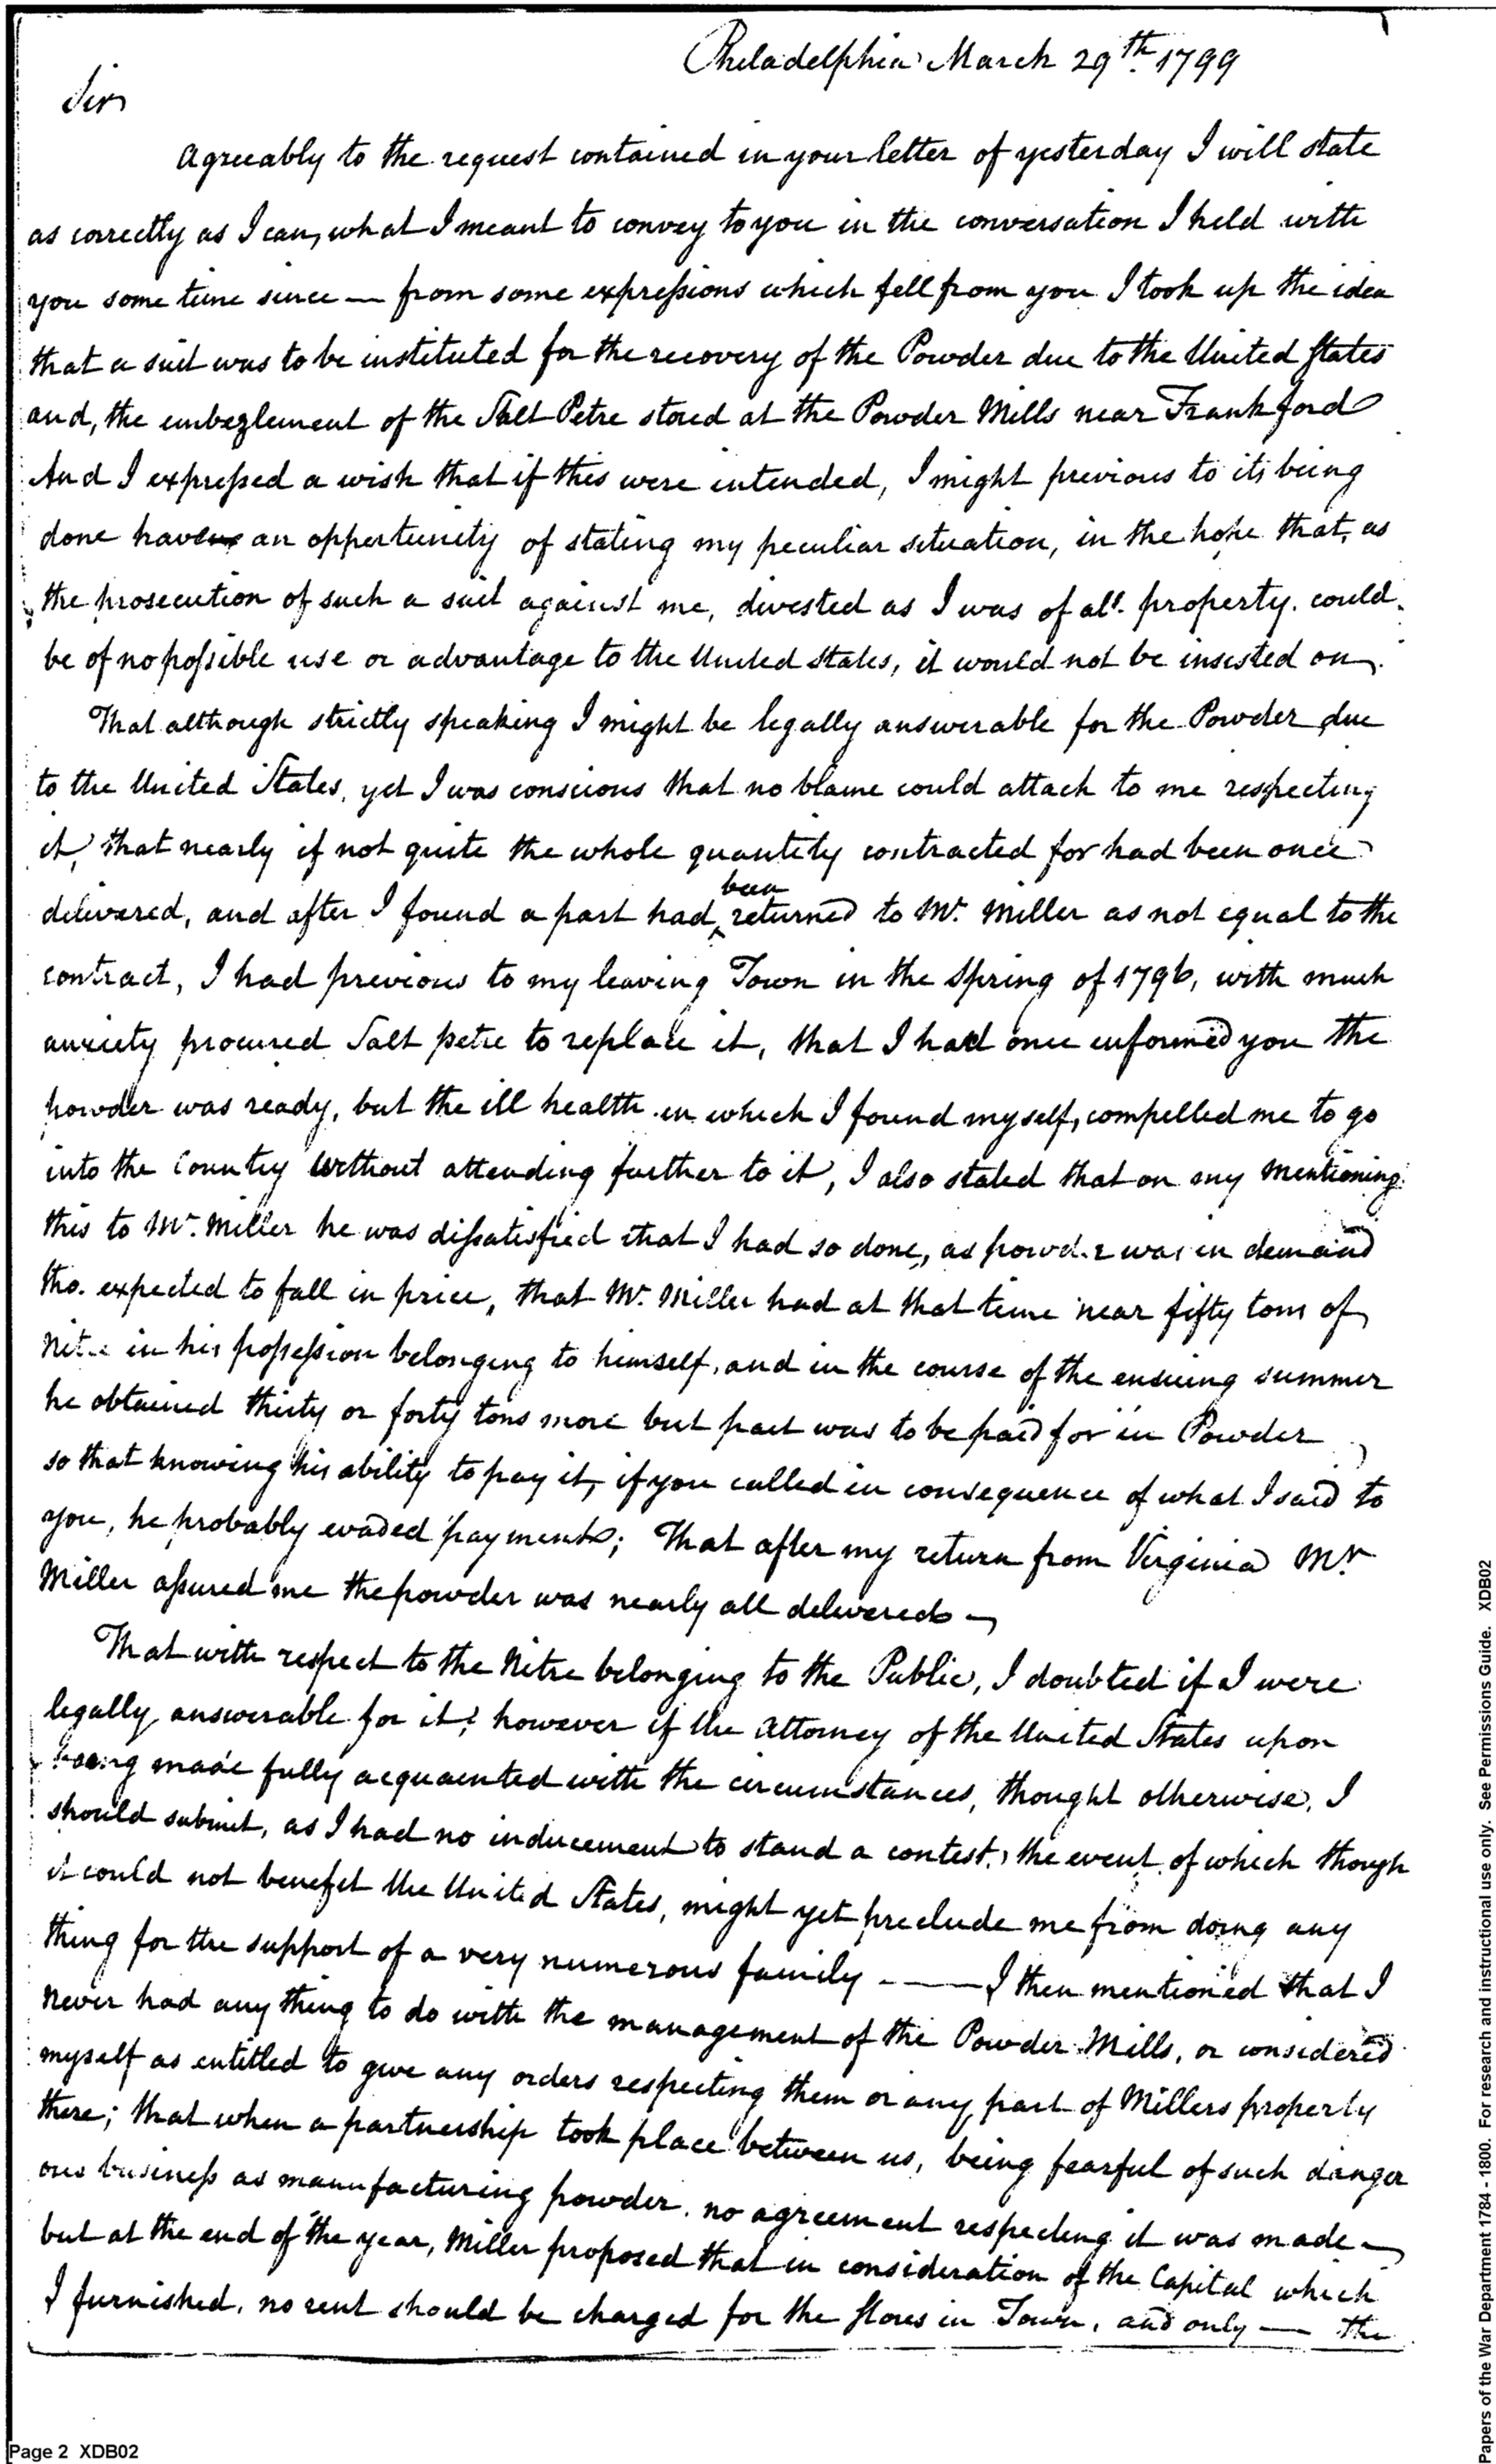 Philadelphia March 29th. 1799
Sir
Agreeably to the request contained in your letter of yesterday I will state
as correctly as I can, what I meant to convey to you in the conversation I held with
you some time since — from some expressions which fell from you I took up the idea
that a suit was to be instituted for the recovery of the Powder due to the United States
and, the embezlement of the Salt Petre stored at the Powder Mills near Frankford
And I expressed a wish that if this were intended, I might previous to its being
done have an oppertunity of stating my peculiar situation, in the hope that, as
the prosecution of such a suit against me, divested as I was of all property. could
be of no possible use or advantage to the United States, it would not be insisted on.
That although strictly speaking I might be legally answerable for the Powder due
to the United States, yet I was conscious that no blame could attach to me respecting
it, that nearly if not quite the whole quantity contracted for had been once
delivered, and after I found a part had been returned to Mr. Miller as not equal to the
contract, I had previous to my leaving Town in the Spring of 1796, with much
anxiety procured Salt petre to replace it, that I had once informed you the
powder was ready, but the ill health in which I found myself, compelled me to go
into the Country without attending further to it, I also stated that on my mentioning
this to Mr. Miller he was dissatisfied that I had so done, as powder was in demand
tho. expected to fall in price, that Mr. Miller had at that time near fifty tons of
Nitre in his possession belonging to himself, and in the course of the ensuing summer
he obtained thirty or forty tons more but part was to be paid for in Powder
so that knowing his ability to pay it, if you called in consequence of what I said to
you, he probably evaded payment; That after my return from Virginia Mr.
Miller assured me the powder was nearly all delivered —
That with respect to the Nitre belonging to the Public, I doubted if I were
legally answerable for it; however if the Attorney of the United States upon
being made fully acquainted with the circumstances, thought otherwise, I
should submit, as I had no inducement to stand a contest, the event of which though
it could not benefit the United States, might yet preclude me from doing any
thing for the support of a very numerous family - — I then mentioned that I
never had any thing to do with the management of the Powder Mills, or considered
myself as entitled to give any orders respecting them or any part of Millers property
there; that when a partnership took place between us, being fearful of such danger
ous business as manufacturing powder, no agreement respecting it was made —
but at the end of the year, Miller proposed that in consideration of the Capital which
I furnished, no rent should be charged for the stores in Town, and only — the
Page 2 XDB02
Papers of the War Department 1784 - 1800. For research and instructional use only. See Permissions Guide. XDB02